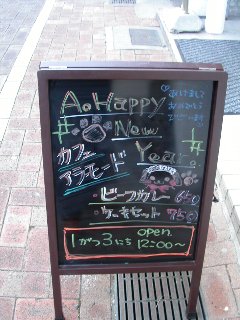 A Happy
New
Year
あけまして
おめでとう
ございます
カフェ
アラモード
・ビーフカレー 650
・ケーキセット 750
1がつ3にち open 12:00〜